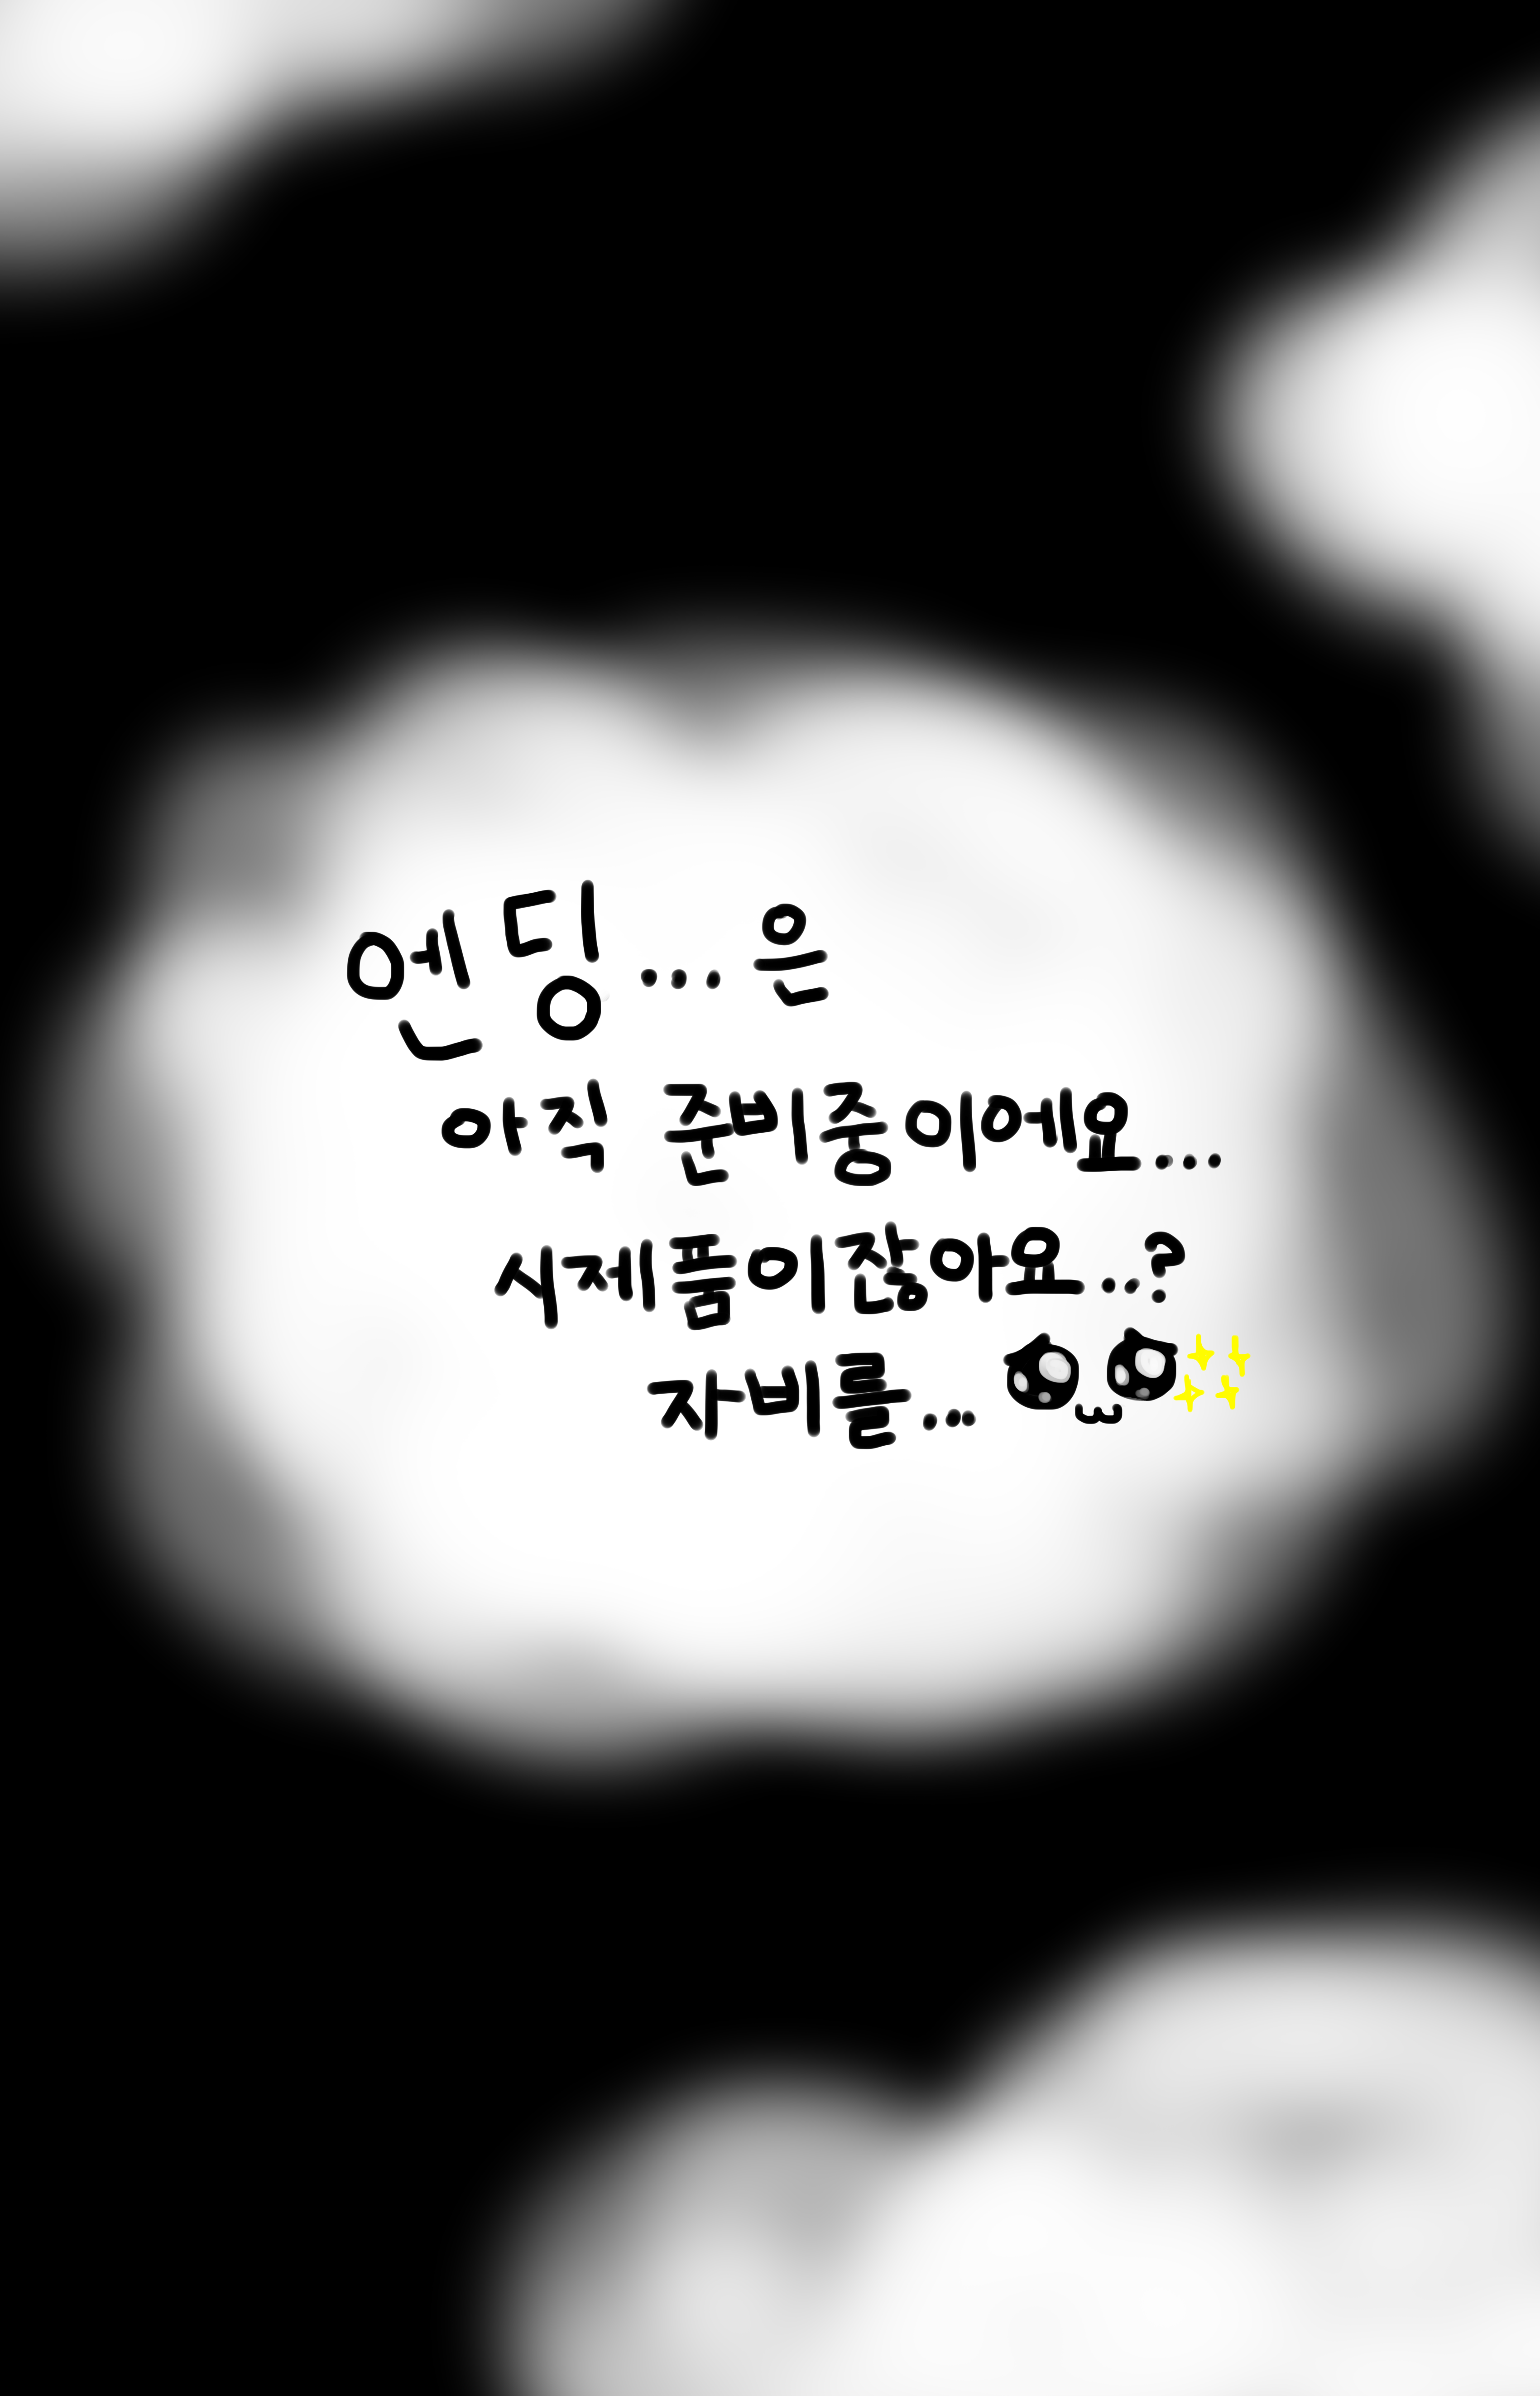 엔딩...은
아직 준비중이에요...
시제품이잖아요..?
자비를...